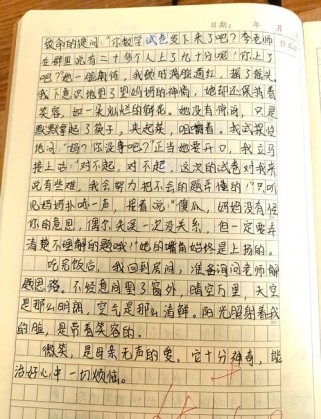 日期： 年 月
致命的提问："你数学试卷发下来了吧？李老师
在群里说有二十多个人上了九十分呢！你上了
吧？"她一脸期待，我顿时满脸通红，摇了摇头。
我下意识地望了望妈妈的神情，她却还保持着
笑容，如一朵灿烂的鲜花。她没有说话，只是
默默拿起了筷子，夹起菜，咀嚼着。我试探性
地问："妈？你没事吧？"正当她要开口，我立马
接上话："对不起，对不起，这次的试卷对我来
说有些难，我会努力把不会的题弄懂的！"只听
见妈妈扑哧一声，接着说："傻瓜，妈妈没有怪
你的意思，偶尔失误一次没关系，但一定要弄
清楚不理解的题哦！"她的嘴角始终是上扬的。
吃完饭后，我回到房间，准备询问老师解
题思路。不经意间望了窗外，晴空万里，天空
是那么明朗，空气是那么清鲜。阳光照射着我
的脸，是带着笑容的。
微笑，是母亲无声的爱。它十分神奇，能
治好心中一切烦恼。